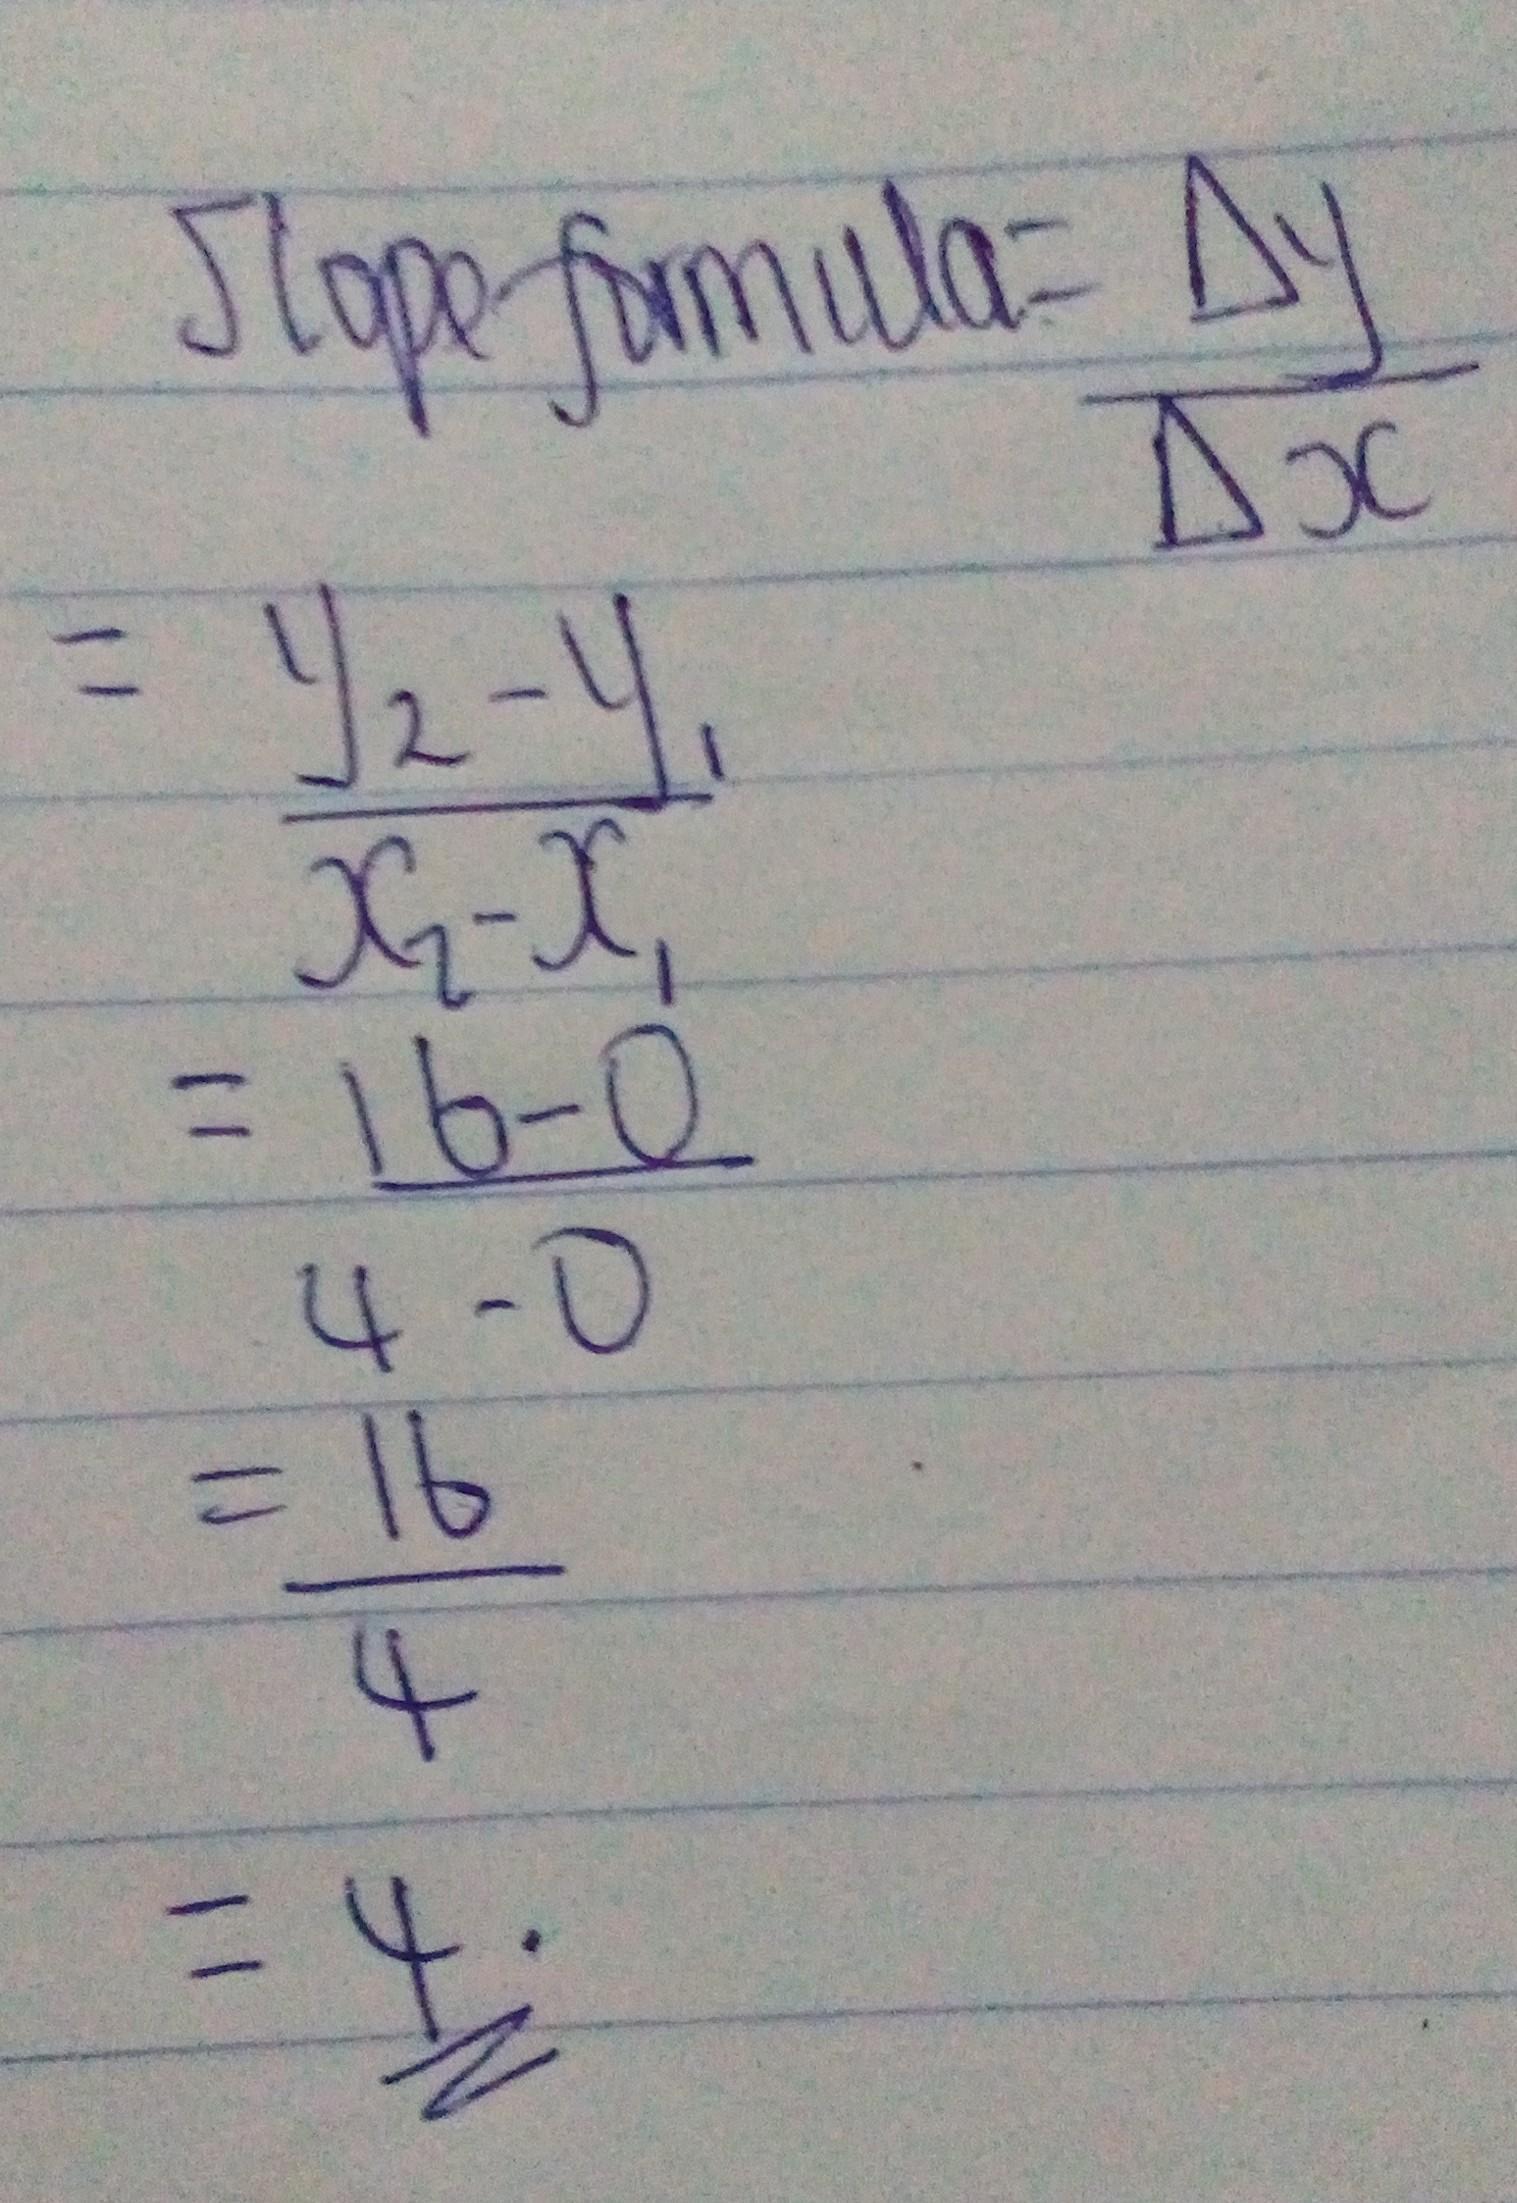 Slope formula = Δy
Δx
= y₂ - y₁
x₂ - x₁
= 16 - 0
4 - 0
= 16
4
= 4.